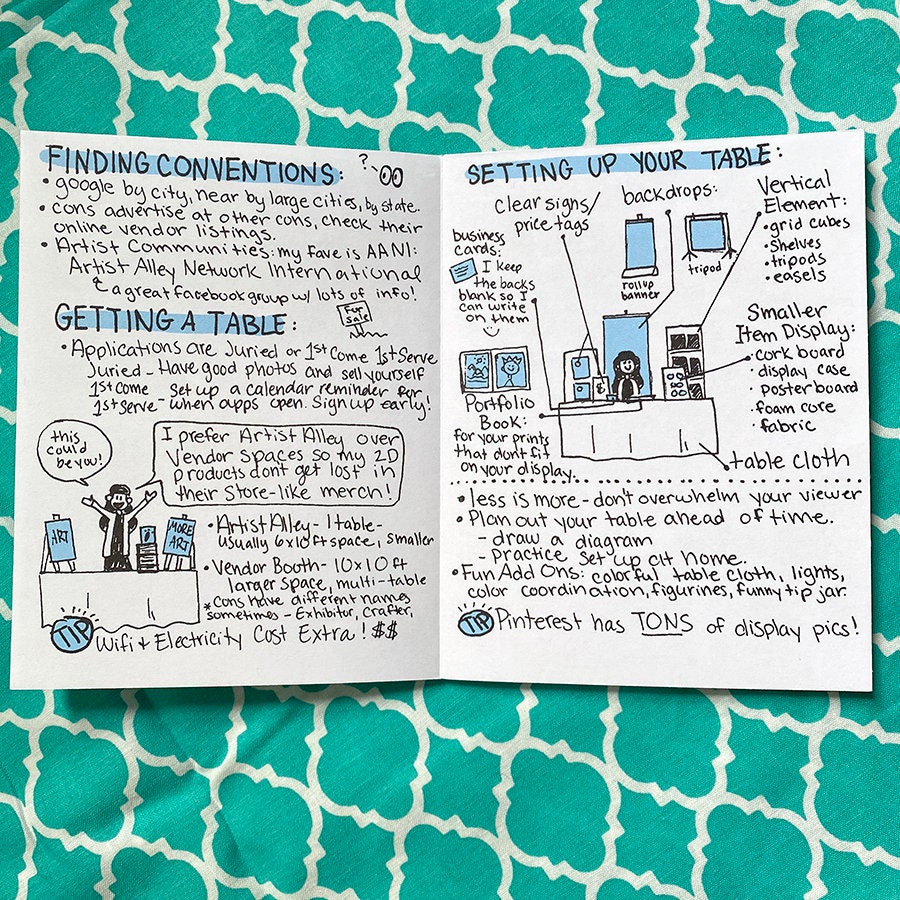 FINDING CONVENTIONS: ?
• google by city, near by large cities, by state.
• cons advertise at other cons, check their
online vendor listings.
• Artist Communities: my fave is AANI:
Artist Alley Network International
a great facebook group w/ lots of info!
GETTING A TABLE:
For
Sale
• Applications are Juried or 1st Come 1st Serve
Juried - Have good photos and sell yourself
1st come - Set up a calendar reminder for
1st serve - when apps open. Sign up early!
this
could
be you!
I prefer Artist Alley over
Vendor spaces so my 2D
products dont get lost in
their store-like merch!
ART
MORE
ART
• Artist Alley - 1 table -
usually 6x10ft space, smaller
• Vendor Booth - 10x10 ft
larger space, multi-table
* Cons have different names
sometimes - Exhibitor, Crafter,
TIP Wifi + Electricity Cost Extra! $$
SETTING UP YOUR TABLE:
clear signs/
price tags
backdrops:
rollup
banner
tripod
Vertical
Element:
• grid cubes
• Shelves
• tripods
• easels
business
cards:
I keep
the backs
blank so I
can write
on them
Smaller
Item Display:
• cork board
• display case
• poster board
• foam core
• fabric
Portfolio
Book:
for your prints
that dont fit
on your display.
table cloth
• less is more - don't overwhelm your viewer
• Plan out your table ahead of time.
- draw a diagram
- practice set up at home.
• Fun Add Ons: colorful table cloth, lights,
color coordination, figurines, funny tip jar.
TIP Pinterest has TONS of display pics!